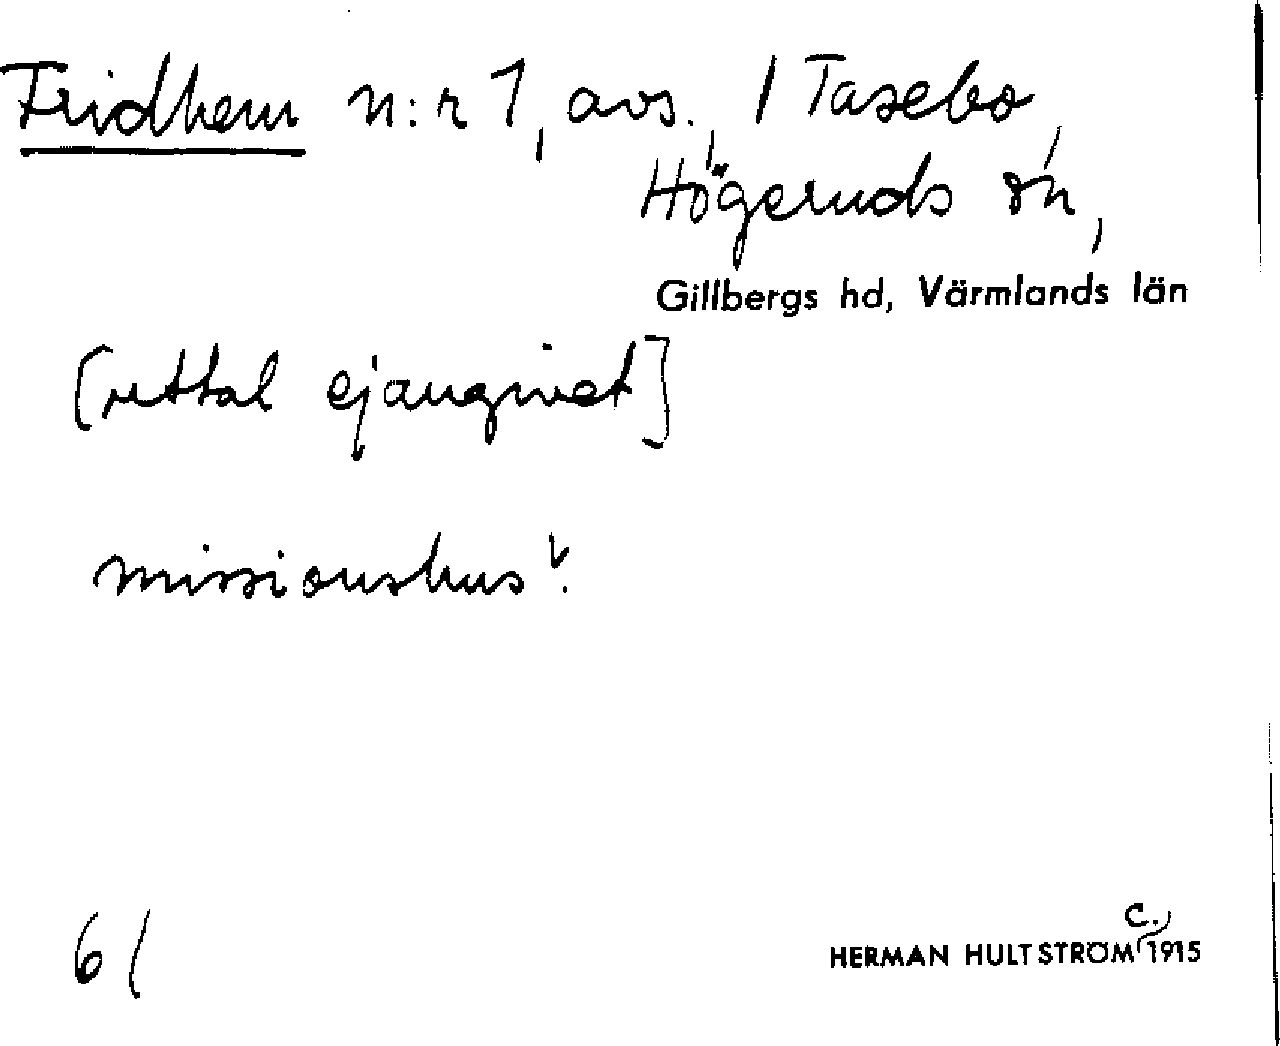 Fridhem n:r 1, avs., / Tasebo,
Högeruds sn,
Gillbergs hd, Värmlands län
[uttal ej angivet]
missionshus.
61
HERMAN HULTSTRÖM c. 1915